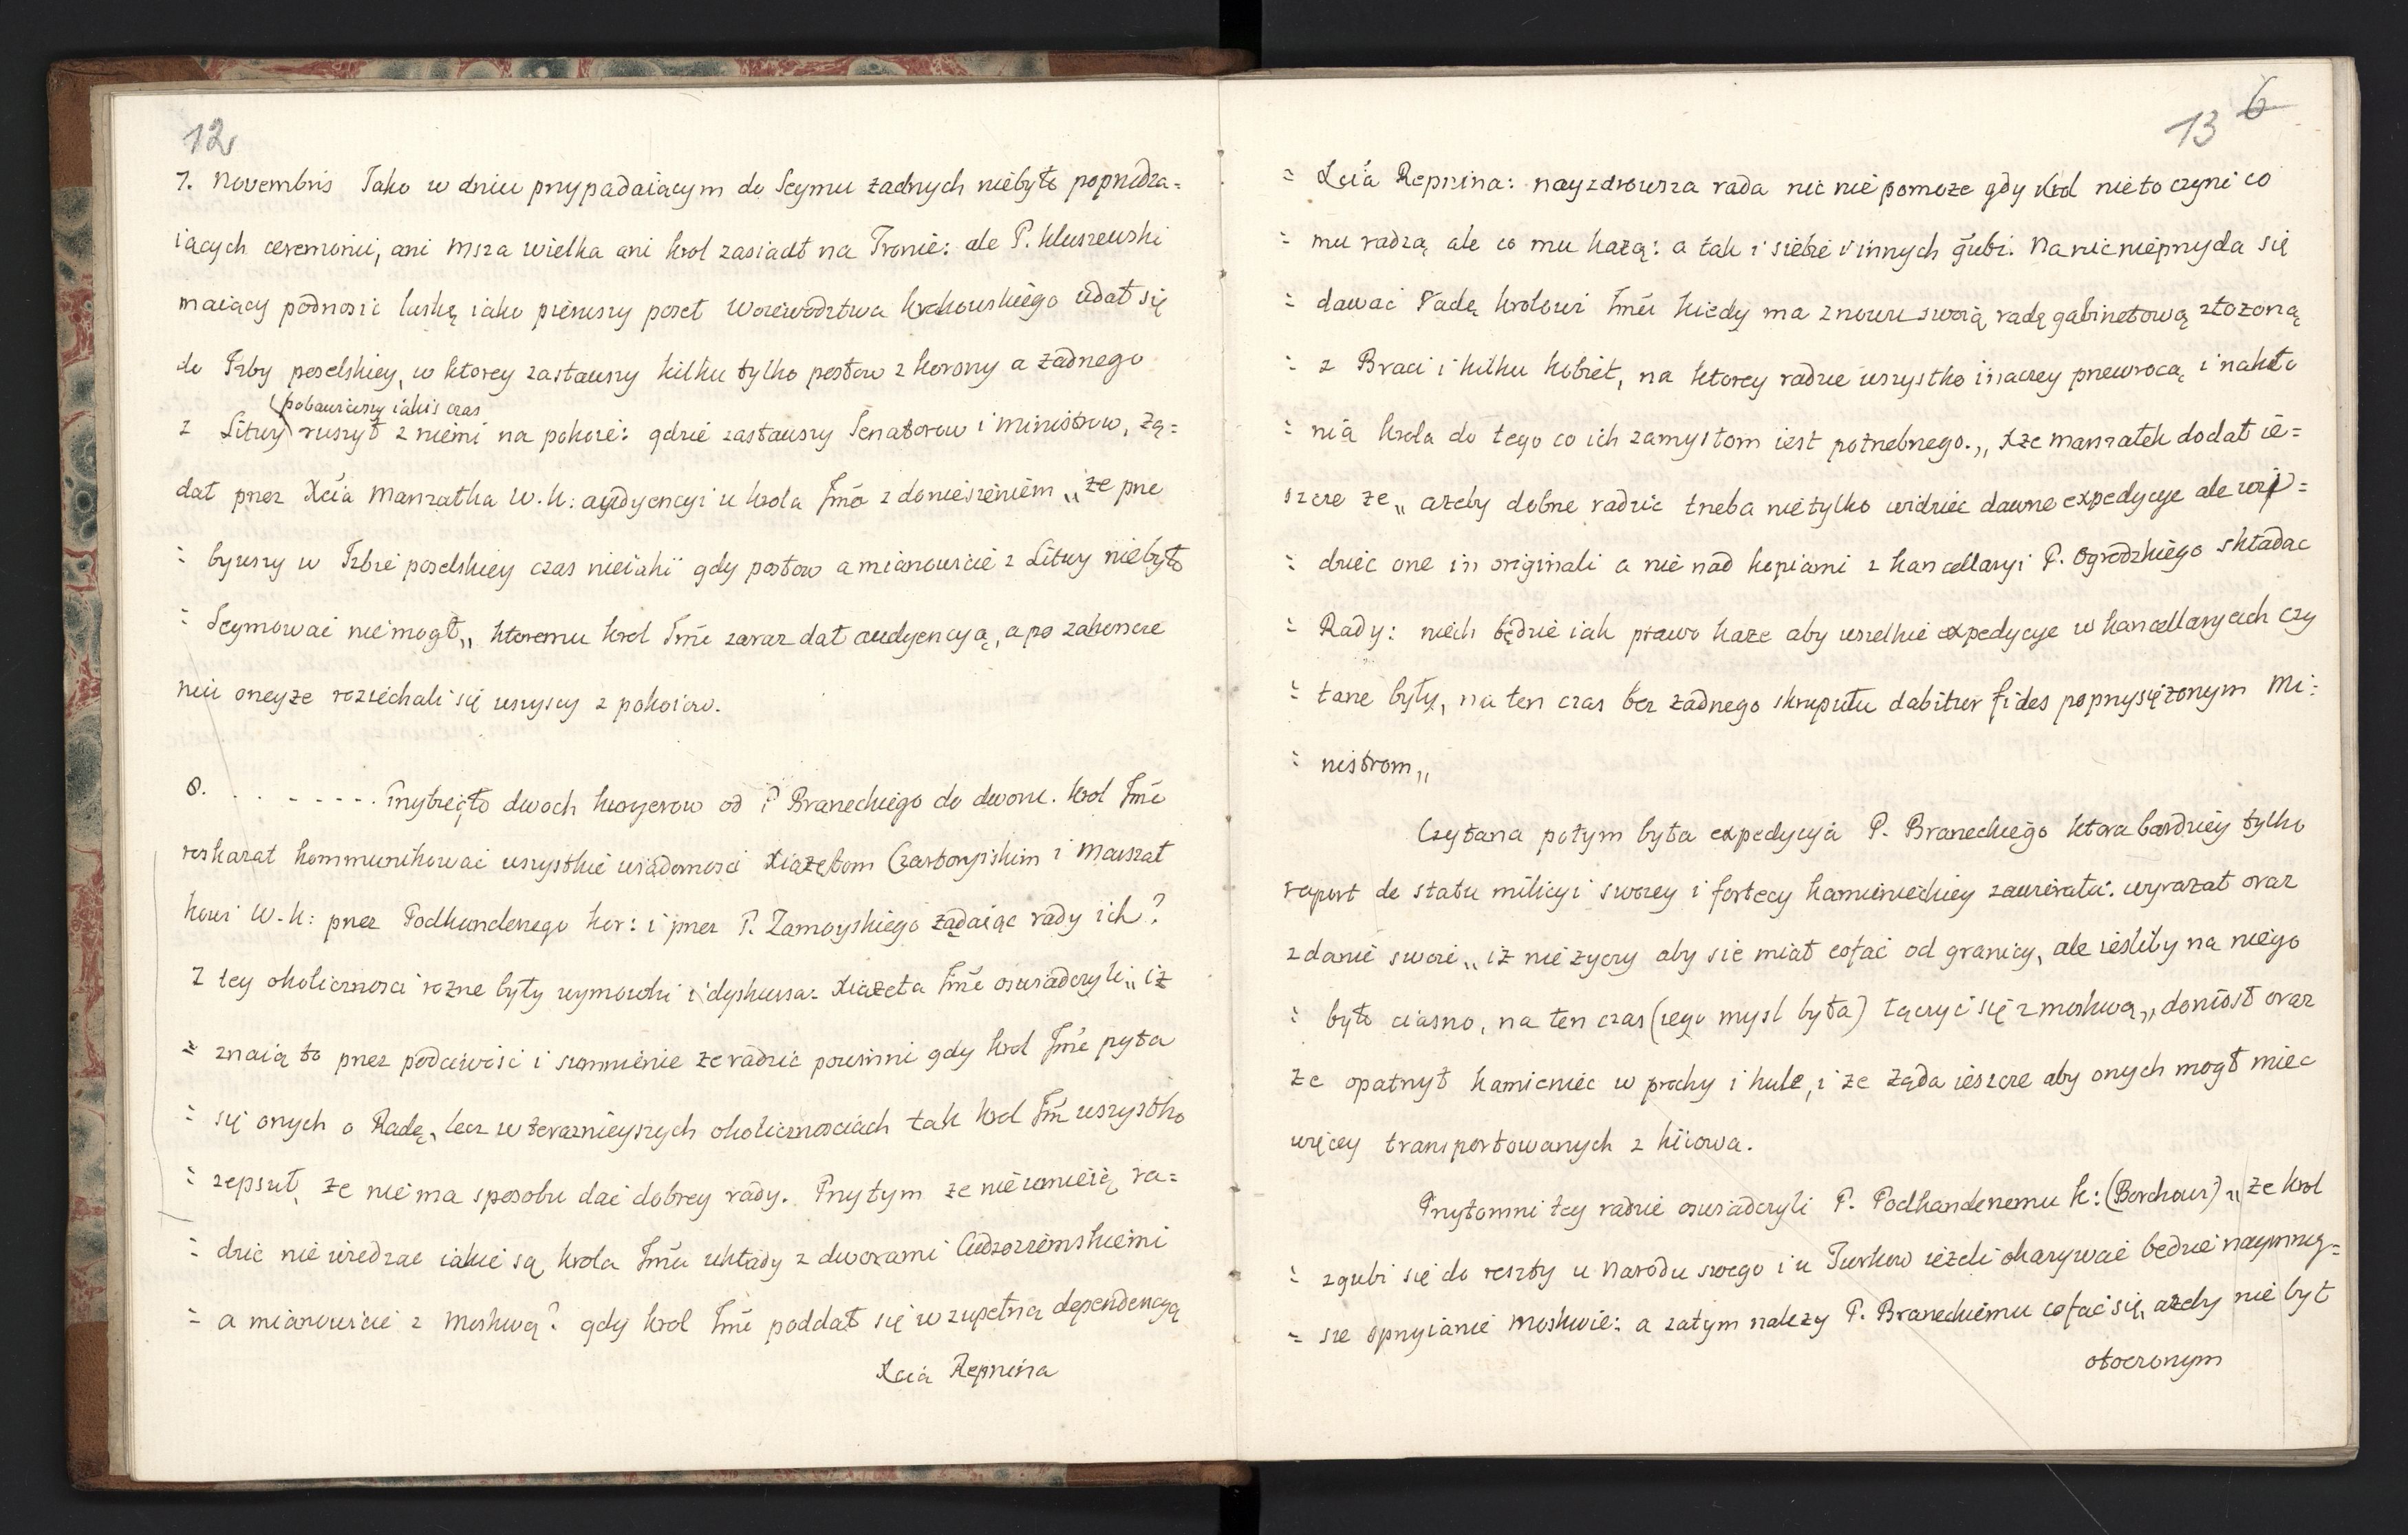 12
7. Novembris Jako w dniu przypadaiącym do Seymu żadnych niebyło poprzedza=
iących ceremonii, ani Msza wielka ani Krol zasiadł na Tronie: ale P. Kluszewski
maiący podnosic laskę iako pierwszy poseł Woiewodztwa Krakowskiego udał się
do Izby poselskiey, w ktorey zastawszy kilku tylko posłow z Korony a żadnego
(pobawiwszy iakis czas
z Litwy) ruszył z niemi na pokoie: gdzie zastawszy Senatorow i Ministrow, żą=
dał przez Xcia Marszałka W. K: audyencyi u Krola Jmći z doniesieniem „że prze
= bywszy w Izbie poselskiey czas nieiakiï gdy posłow a mianowicie z Litwy niebyło
= Seymowac niemogł„ ktoremu Krol Jmć zaraz dał audyencyą, a po zakoncze
niu oneyże roziechali się wszyscy z pokoiow.
8. . . - - - - - . Przybiegło dwoch kuryerow od P Braneckiego do dworu. Krol Jmć
roskazał kommunikowac wszystkie wiadomosci Xiążętom Czartoryiskim i Marszał
kowi W. K: przez Podkanclerzego Kor: i przez P. Zamoyskiego żądaiąc rady ich?
Z tey okolicznosci rożne były wymowki i dyskursa: Xiążeta Jmć oswiadczyli„ iż
= znaią to przez podciwość i sumnienie że radzic powinni gdy Krol Jmć pyta
= się onych o Radę, lecz w teraznieyszych okolicznosciach tak Krol Jmć wszystko
= zepsuł, że nie ma sposobu dać dobrey rady. Przytym że nie umieią ra=
= dzic nie wiedząc iakie są Krola Jmći układy z dworami Cudzoziemskiemi
= a mianowicie z Moskwą? gdy Krol Jmć poddał się w zupełną dependencyą
Xcia Repnina
13 6
= Xcia Repnina: nayzdrowsza rada nic nie pomoże gdy Krol nie to czyni co
= mu radzą ale co mu każą: a tak i siebie i innych gubi. Na nic nieprzyda się
= dawać radę Krolowi Jmći kiedy ma znowu swoią radę gabinetową złożoną
= z Braci i kilku kobiet, na ktorey radzie wszystko inaczey przewrocą i nakło
= nią Krola do tego co ich zamysłom iest potrzebnego.„ Xże Marszałek dodał ie=
szcze że „ ażeby dobrze radzic trzeba nietylko widziec dawne expedycye ale wi=
= dziec one in originali a nie nad kopiami z kancellaryi P. Ogrodzkiego składac
= Rady: niech będzie iak prawo każe aby wszelkie expedycye w kancellaryach czy
= tane były, na ten czas bez żadnego skrupułu dabitur fides poprzysiężonym Mi=
= nistrom„
Czytana potym była expedycya P. Braneckiego ktora bardziey tylko
raport de statu milicyi swoiey i fortecy kamienieckiey zawierała: wyrażał oraz
zdanie swoie „ iż nie życzy aby sie miał cofać od granicy, ale iesliby na niego
= było ciasno, na ten czas (iego mysl była) łączyć się z moskwą„ doniosł oraz
że opatrzył kamieniec w prochy i kule, i że żąda ieszcze aby onych mogł miec
więcey transportowanych z kiiowa.
Przytomni tey radzie oswiadczyli P. Podkanclerzemu K: (Borchowi) „ że Krol
= zgubi się do reszty u Narodu swego i u Turkow ieżeli okazywać będzie naymniey=
= sze sprzyianie Moskwie: a zatym należy P. Braneckiemu cofać się, ażeby nie był
otoczonym